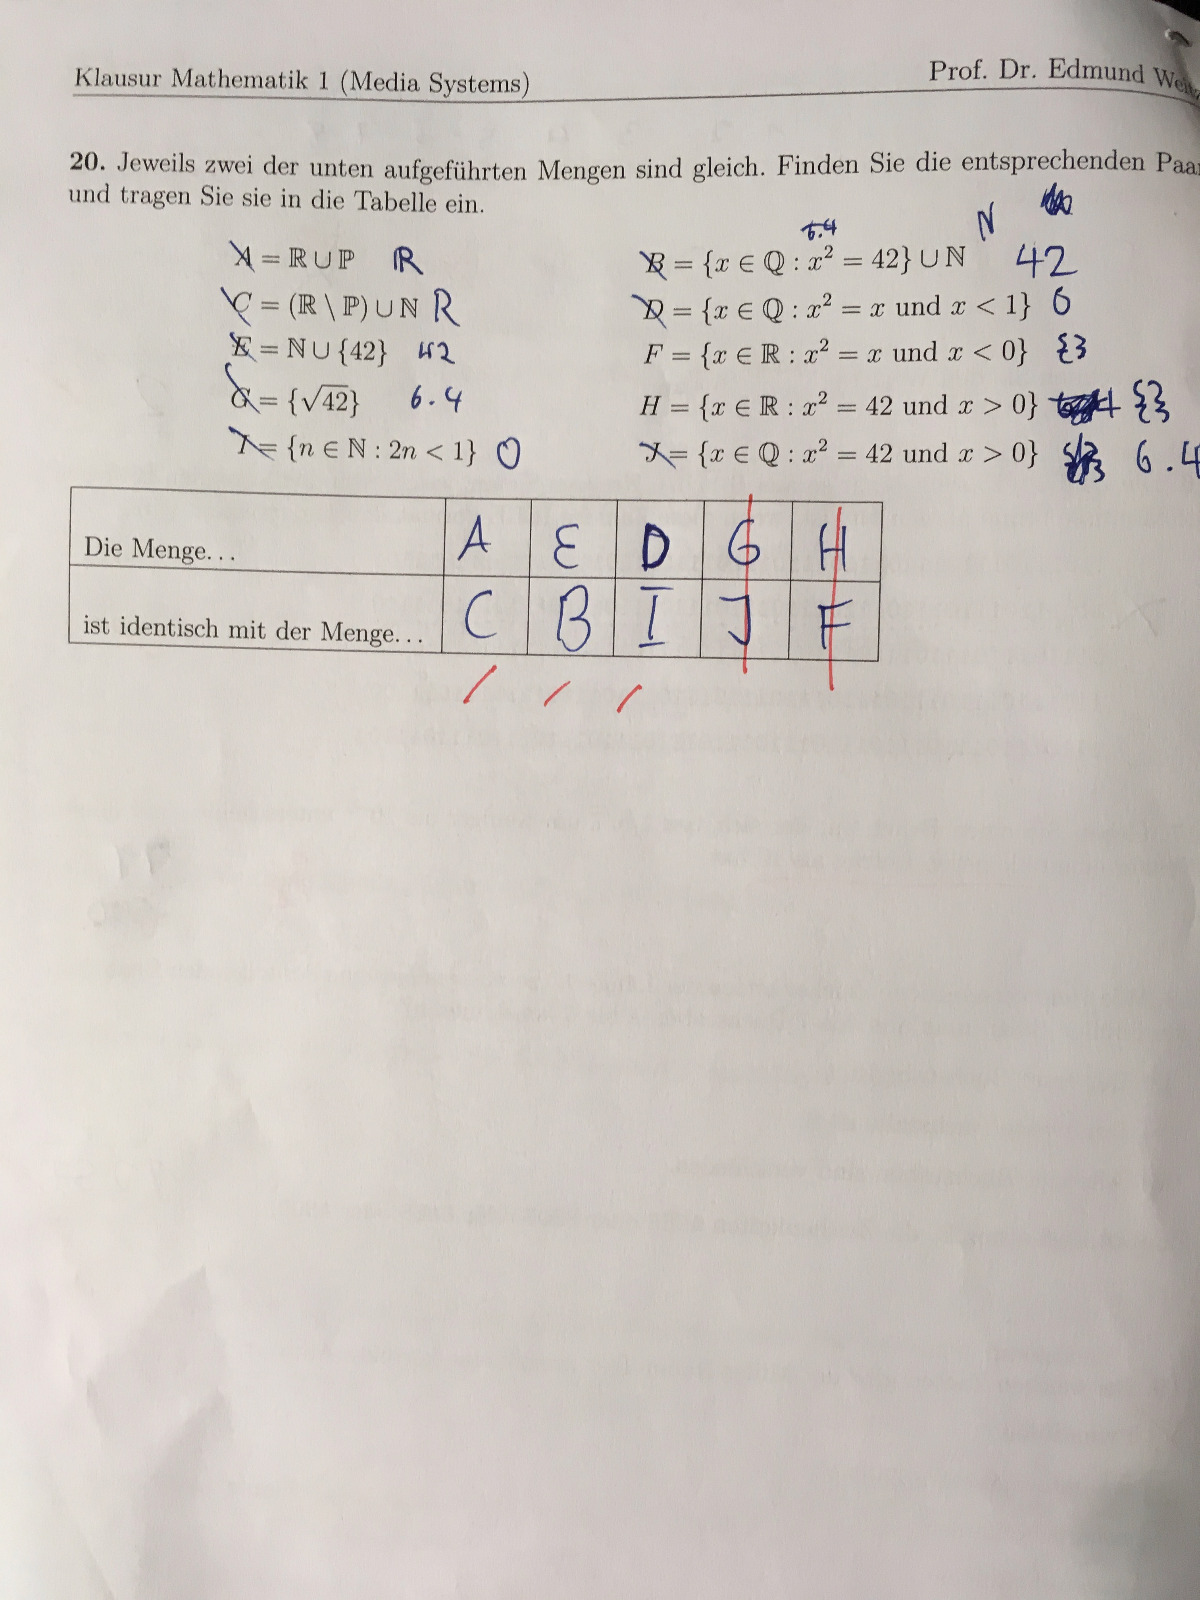 Klausur Mathematik 1 (Media Systems)
Prof. Dr. Edmund Weitz
20. Jeweils zwei der unten aufgeführten Mengen sind gleich. Finden Sie die entsprechenden Paar
und tragen Sie sie in die Tabelle ein.
6.4 N
A = ℝ ∪ ℙ R
B = {x ∈ ℚ : x² = 42} ∪ ℕ 42
C = (ℝ \ ℙ) ∪ ℕ R
D = {x ∈ ℚ : x² = x und x < 1} 0
E = ℕ ∪ {42} 42
F = {x ∈ ℝ : x² = x und x < 0} {}
G = {√42} 6.4
H = {x ∈ ℝ : x² = 42 und x > 0} {}
I = {n ∈ ℕ : 2n < 1} 0
J = {x ∈ ℚ : x² = 42 und x > 0} 6.4
Die Menge... A E D G H
ist identisch mit der Menge... C B I J F